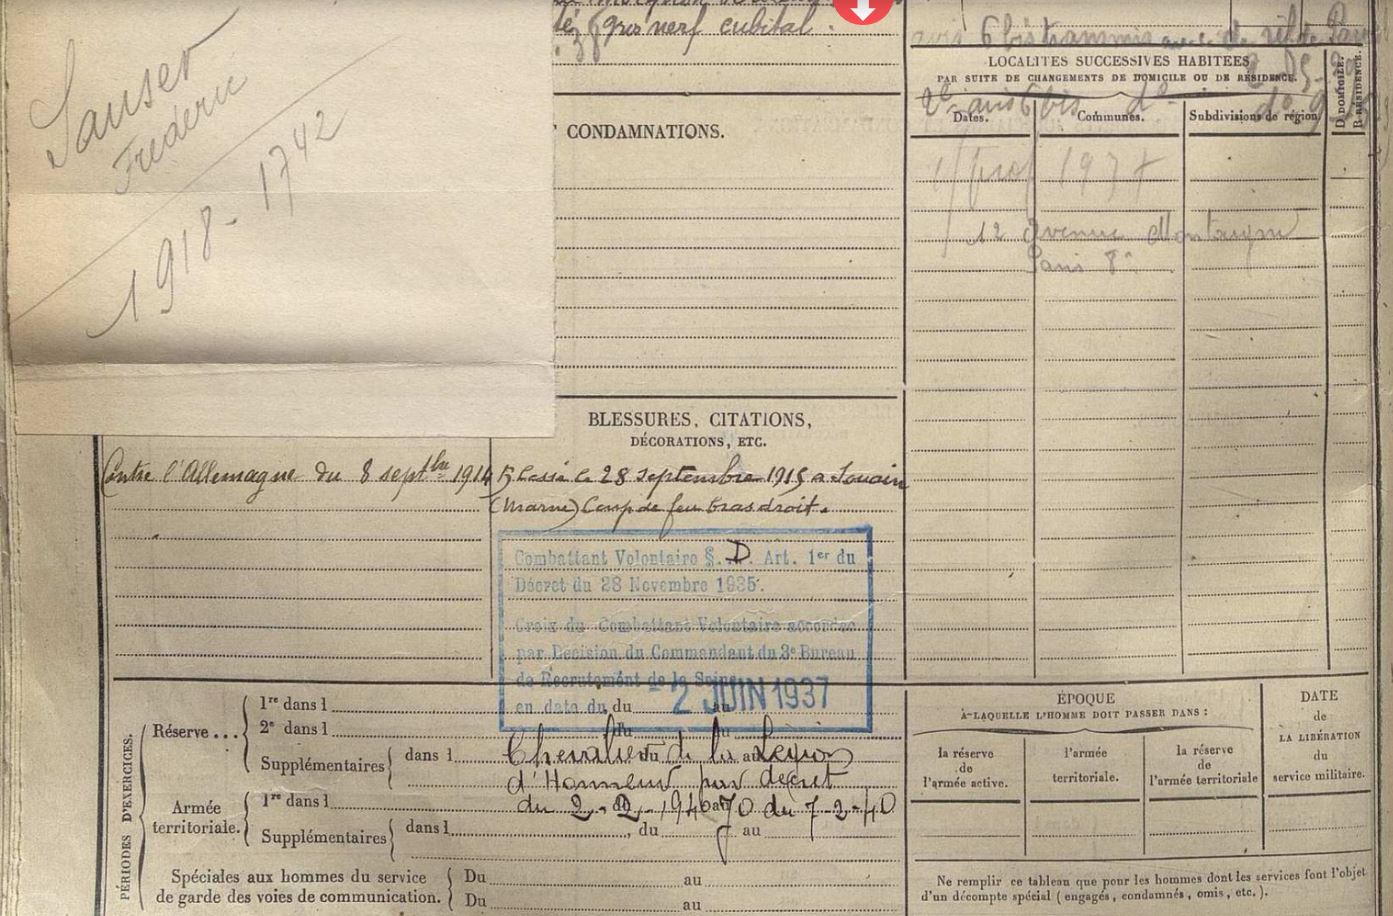 Sauser
Frédéric
1918-1742
gros nerf cubital.
CONDAMNATIONS.
BLESSURES, CITATIONS,
DÉCORATIONS, ETC.
Contre l'Allemagne du 8 septbre 1914
Blessé le 28 septembre 1915 à Souain
(Marne) Coup de feu bras droit.
Combattant Volontaire §. D. Art. 1er du
Décret du 28 Novembre 1935.
Croix du Combattant Volontaire accordée
par Décision du Commandant du 3e Bureau
de Recrutement de la Seine
en date du - 2 JUIN 1937
Chevalier de la Légion
d'Honneur par décret
du 2-2-1940 JO du 7-2-40
LOCALITÉS SUCCESSIVES HABITÉES
PAR SUITE DE CHANGEMENTS DE DOMICILE OU DE RÉSIDENCE.
Dates.
Communes.
Subdivisions de région.
D. DOMICILE.
R. RÉSIDENCE.
12 Avenue Montaigne
Paris 8e
PÉRIODES D'EXERCICES.
Réserve...
1re dans l du au
2e dans l du au
Supplémentaires dans l du au
Armée
territoriale.
1re dans l du au
Supplémentaires dans l , du au
Spéciales aux hommes du service
de garde des voies de communication.
Du au
Du au
ÉPOQUE
À LAQUELLE L'HOMME DOIT PASSER DANS :
la réserve
de
l'armée active.
l'armée
territoriale.
la réserve
de
l'armée territoriale
DATE
de
LA LIBÉRATION
du
service militaire.
Ne remplir ce tableau que pour les hommes dont les services font l'objet
d'un décompte spécial (engagés, condamnés, omis, etc.).